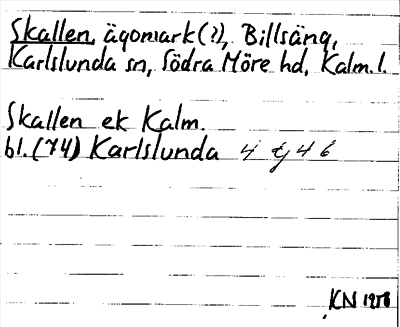 Skallen, ägomark(?), Billsäng,
Karlslunda sn, Södra Möre hd, Kalm. l.
Skallen ek Kalm.
bl. (74) Karlslunda 4 i 4 6
KN 1958